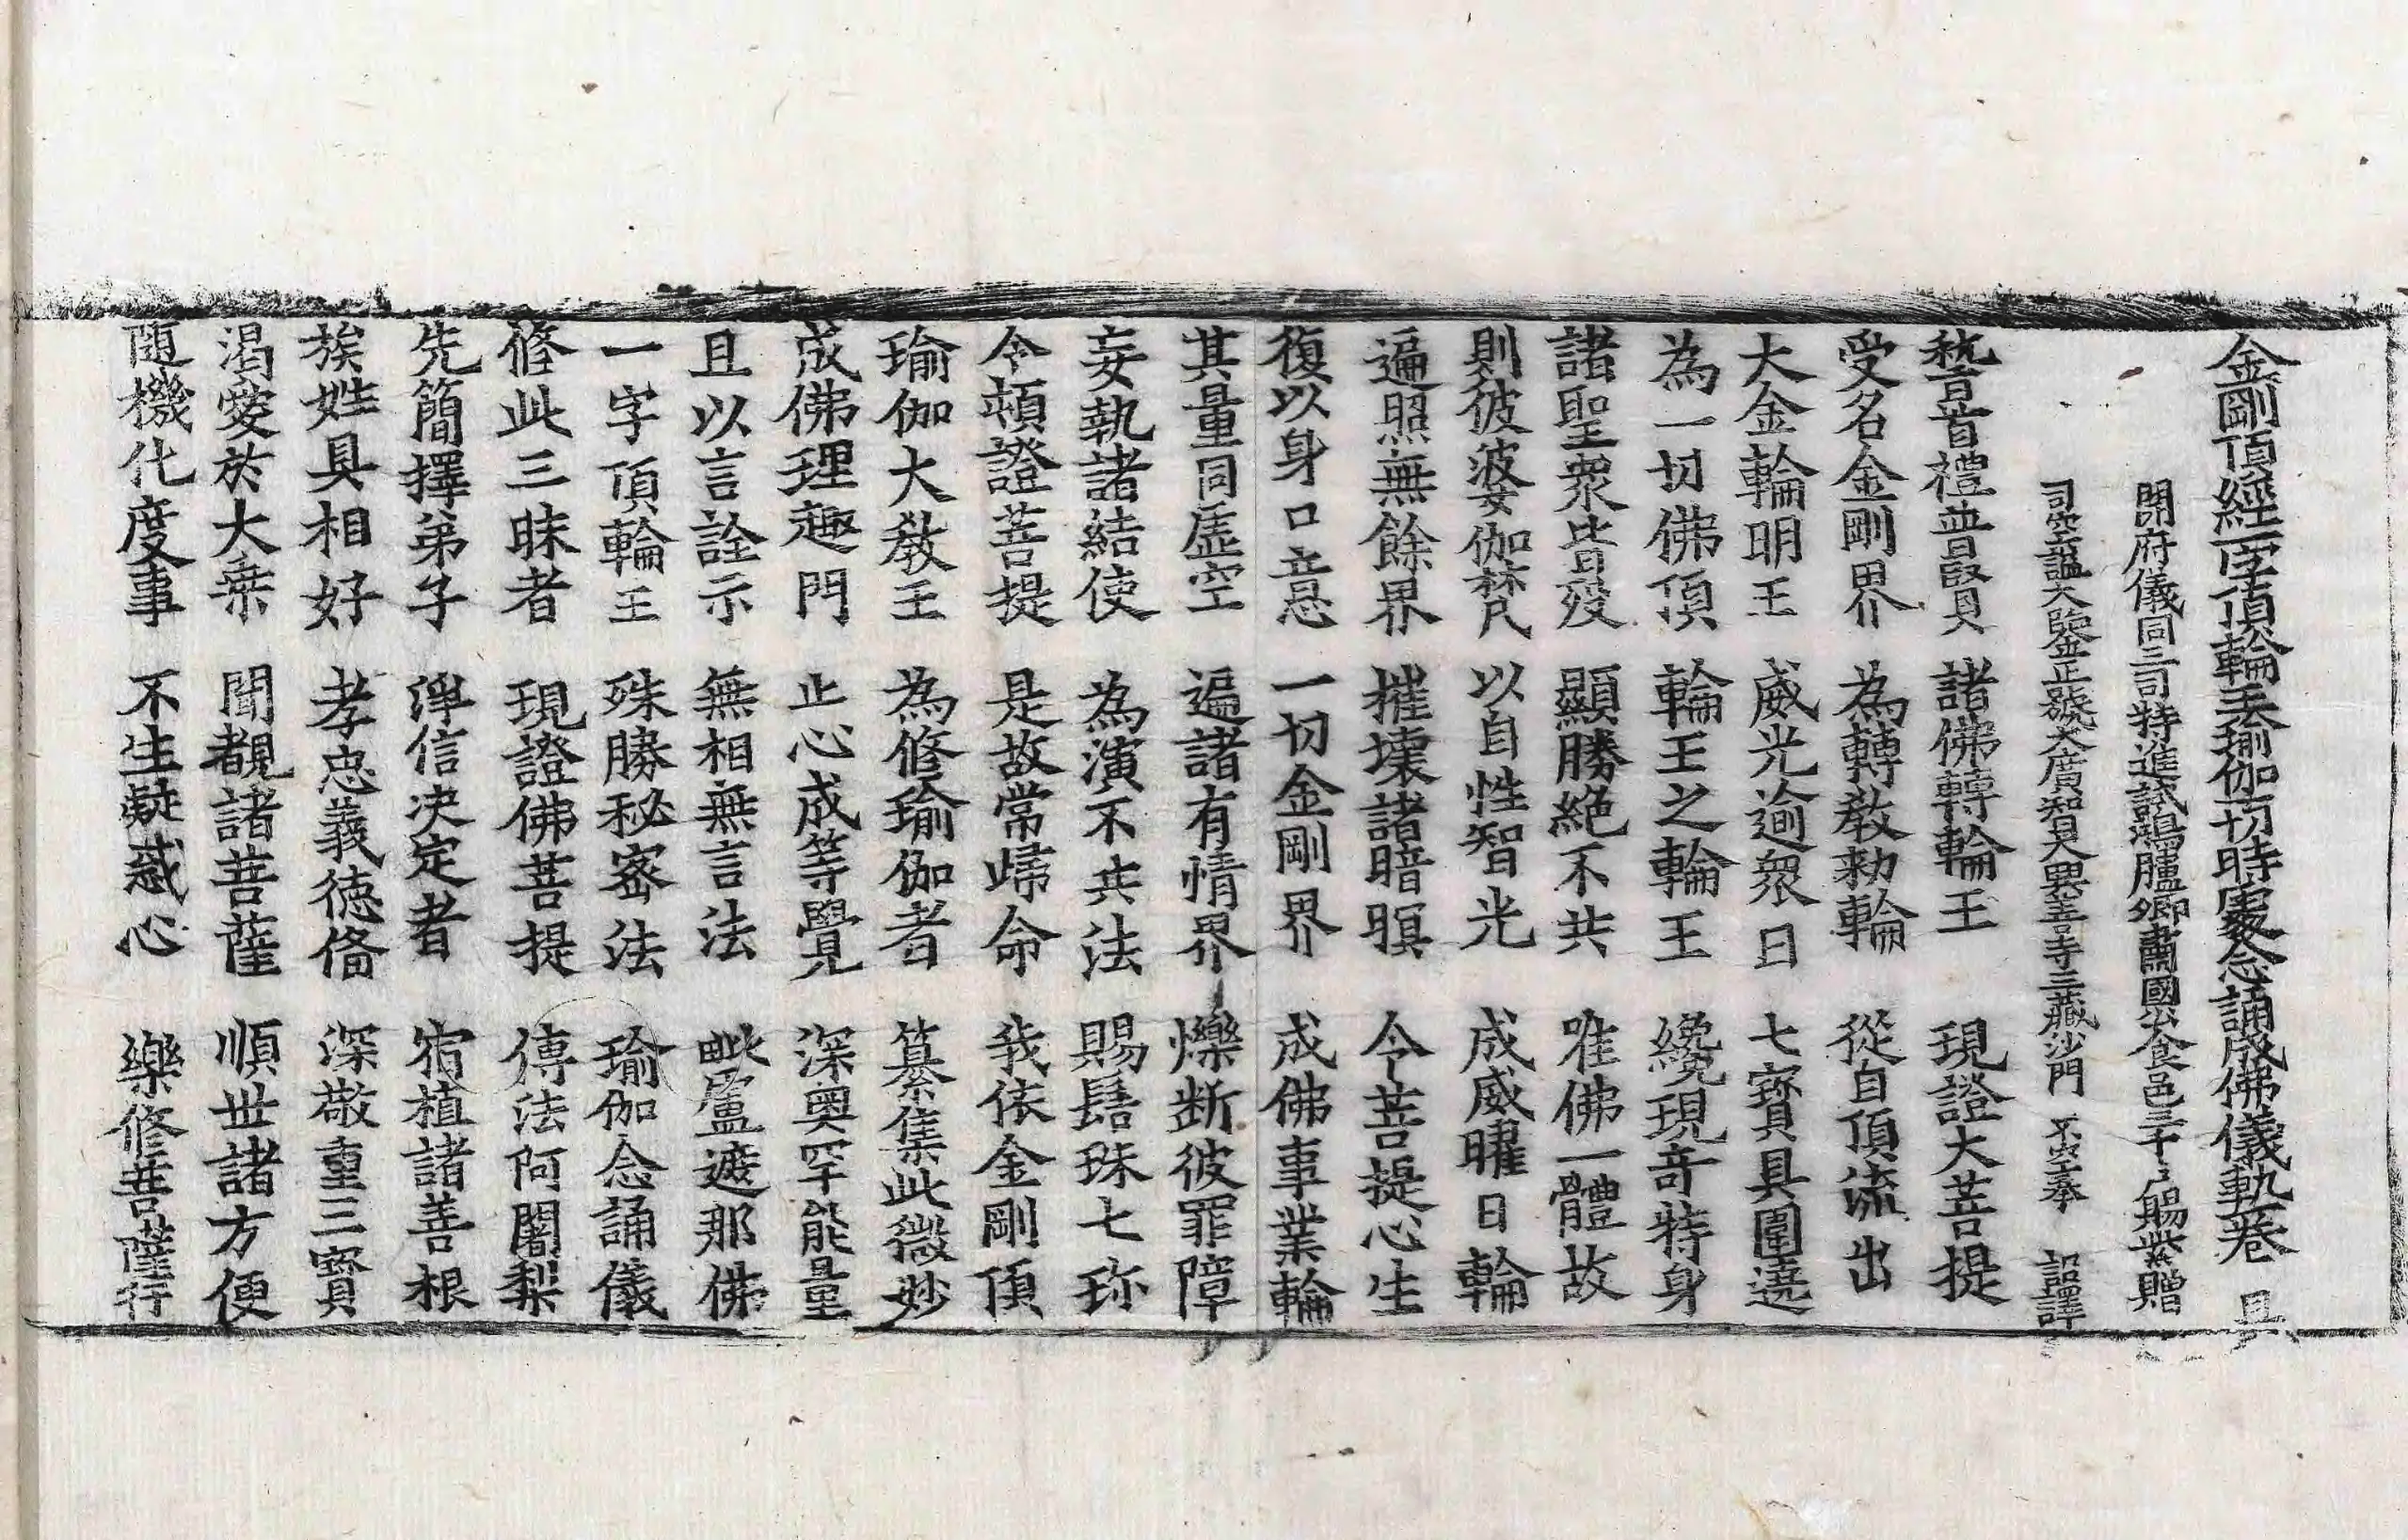 金剛頂經一字頂輪王瑜伽一切時處念誦成佛儀軌一卷 具
開府儀同三司特進試鴻臚卿肅國公食邑三千戶賜紫贈
司空謚大鑒正號大廣智大興善寺三藏沙門 不空奉 詔譯
稽首禮普賢 諸佛轉輪王 現證大菩提
受名金剛界 為轉教勅輪 從自頂流出
大金輪明王 威光逾衆日 七寶具圍遶
為一切佛頂 輪王之輪王 纔現奇特身
諸聖衆皆歿 顯勝絕不共 唯佛一體故
則彼婆伽梵 以自性智光 成威曜日輪
遍照無餘界 摧壞諸暗瞑 令菩提心生
復以身口意 一切金剛界 成佛事業輪
其量同虛空 遍諸有情界 爍斷彼罪障
妄執諸結使 為演不共法 賜髻珠七珎
令頓證菩提 是故常歸命 我依金剛頂
瑜伽大教王 為修瑜伽者 纂集此微妙
成佛理趣門 止心成等覺 深奧罕能量
且以言詮示 無相無言法 毗盧遮那佛
一字頂輪王 殊勝秘密法 瑜伽念誦儀
修此三昧者 現證佛菩提 傳法阿闍梨
先簡擇弟子 淨信決定者 宿植諸善根
族姓具相好 孝忠義德俻 深敬重三寶
渴愛於大乘 聞覩諸菩薩 順世諸方便
随機化度事 不生疑惑心 樂修菩薩行